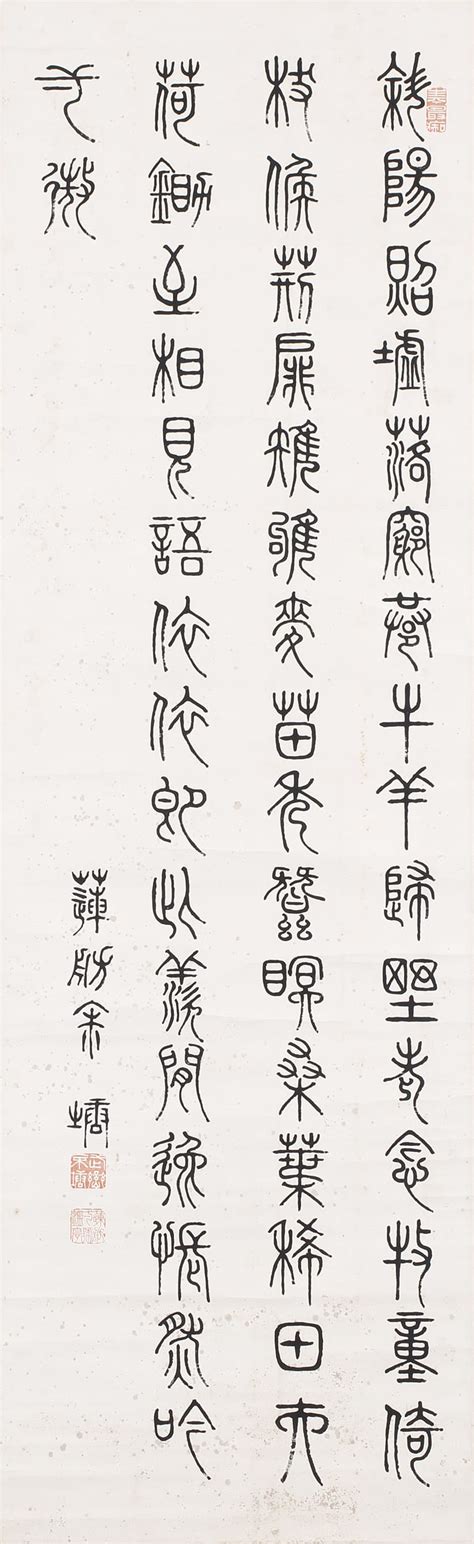 斜陽照墟落窮巷牛羊歸野老念牧童倚
杖候荊扉雉雊麥苗秀蠶瞑桑葉稀田夫
荷鋤至相見語依依即此羨閒逸悵然吟
式微
蓮舫